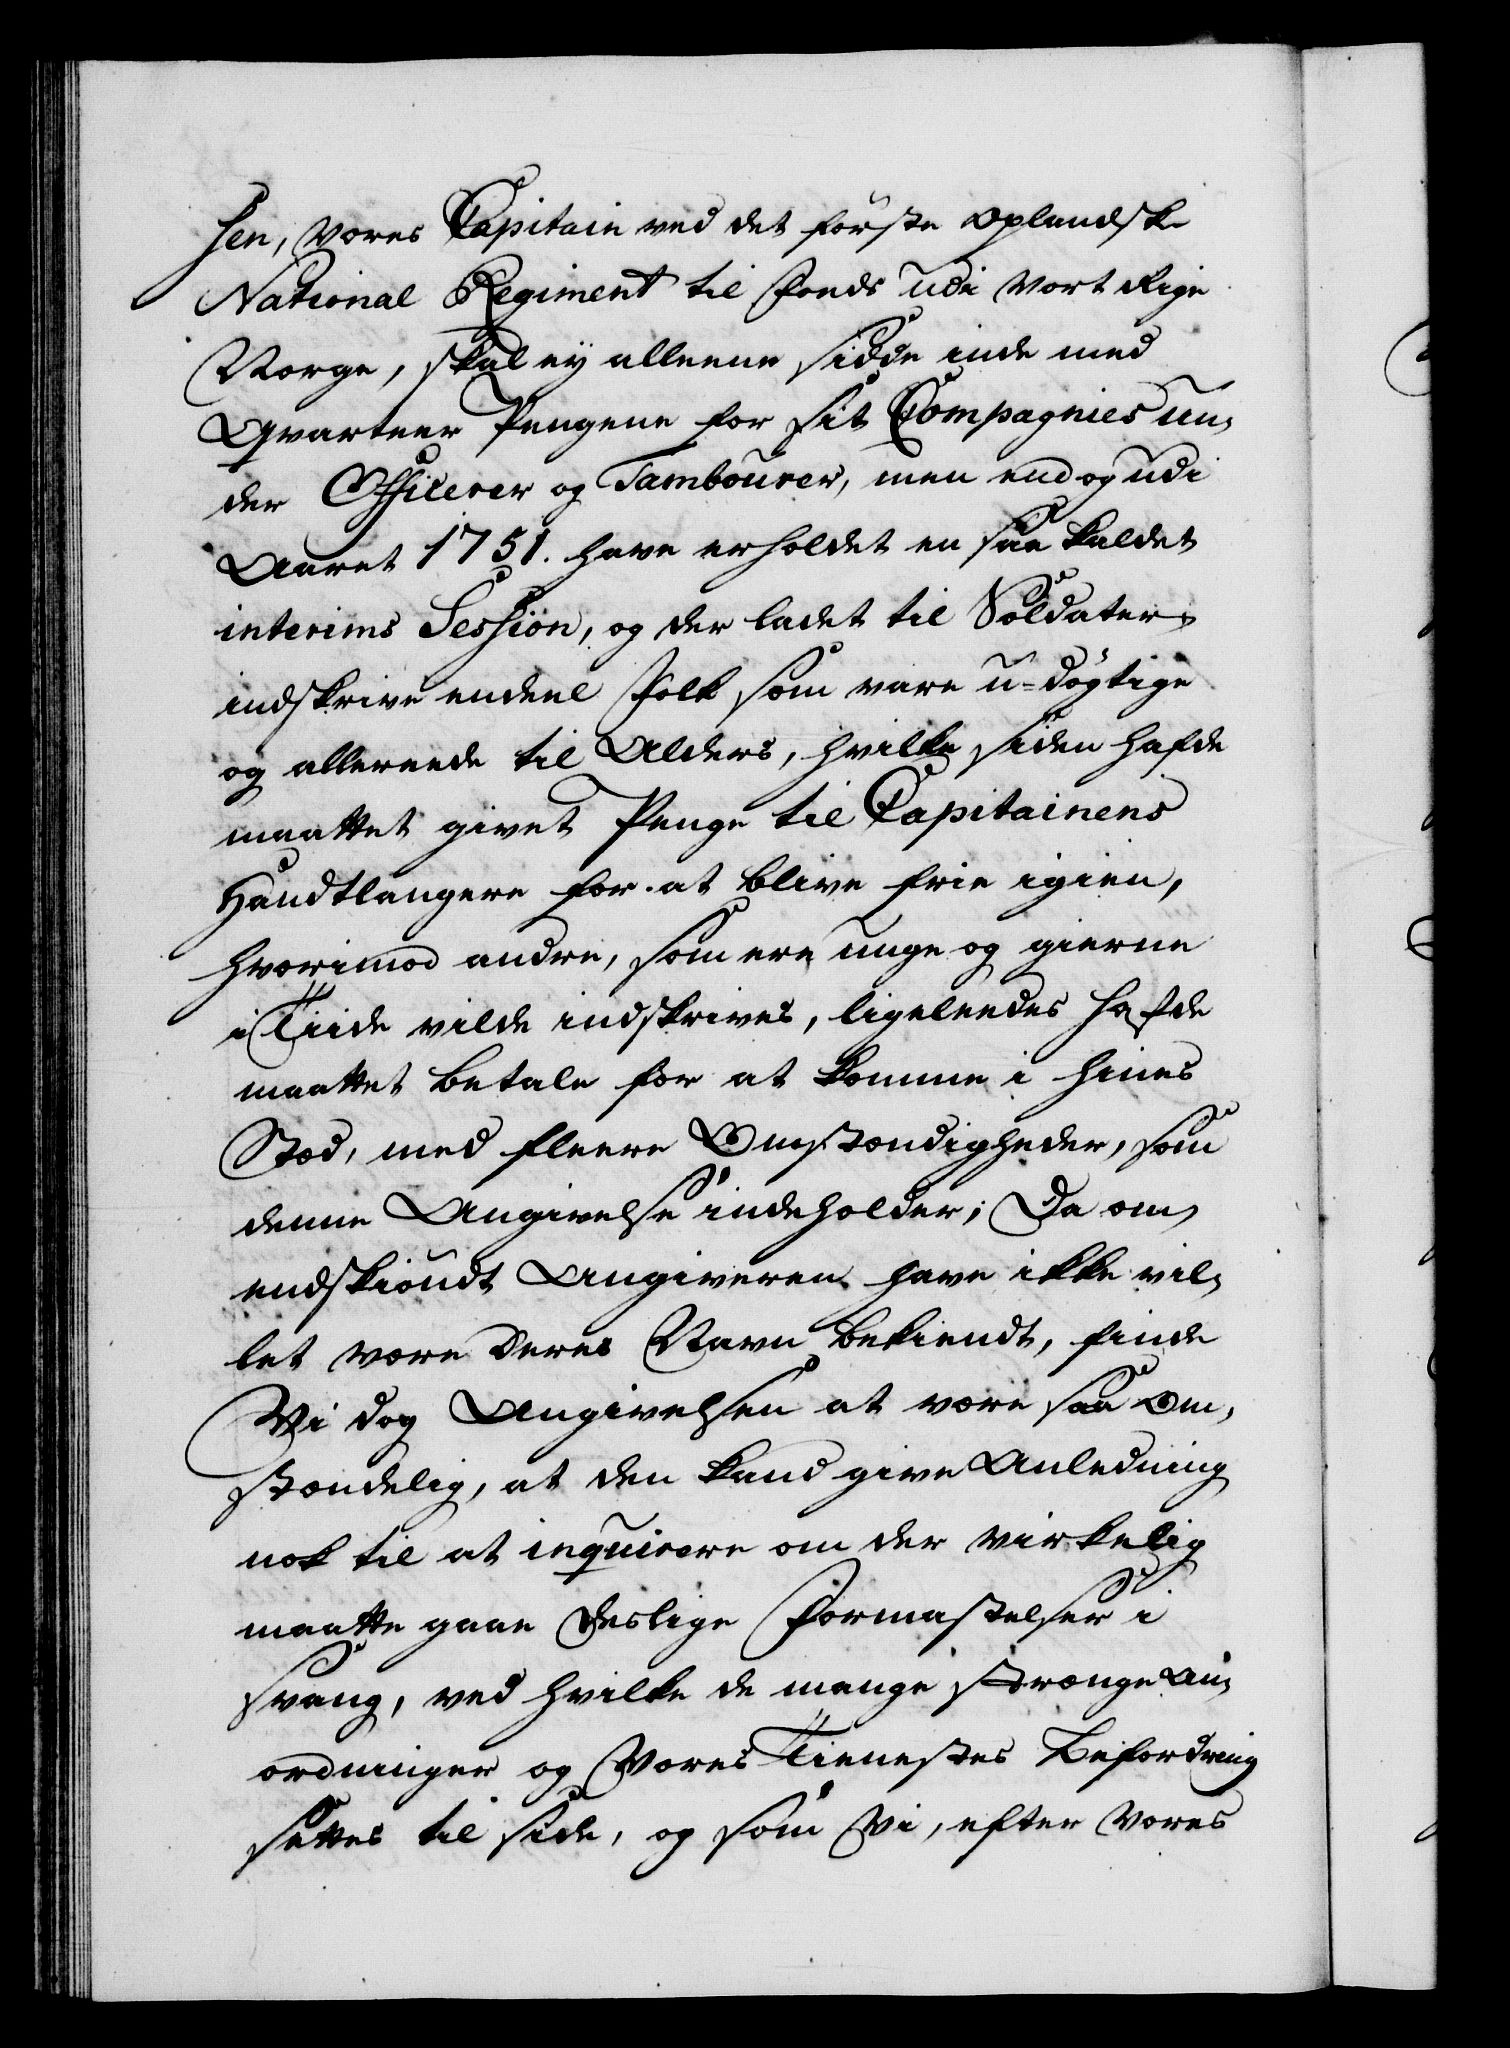 sen, Vores Capitain ved det første Oplandske
National Regiment til Foeds udi Vort Rige
Norge, skal ey alleene sidde inde med
Qvarteer Pengene for sit Compagnies Un,
der Officerer og Tambourer, men endog udi
Aaret 1751. have erholdet en saa kaldet
interims Session, og der ladet til Soldater
indskrive endeel Folk som vare u-døgtige
og allereede til Alders, hvilke siden hafde
maattet givet Penge til Capitainens
Handtlangere for at blive frie igien,
hvorimod andre, som ere unge og gierne
i Tiide vilde indskrives, ligeleedes hafde
maattet betale for at komme i hines
Stæd, med fleere Omstændigheder, som
denne Angivelse indeholder; Da om,
endskiøndt Angiveren have ikke vil,
let være deres Navn bekiendt, finde
Vi dog Angivelsen at være saa Om,
stændelig, at den kand give Anledning
nok til at inqvirere om der virkelig
maatte gaae deslige Formastelser i
svang, ved hvilke de mange strænge An,
ordninger og Vores Tienestes Befordring
settes til side, og som Vi, efter Vores